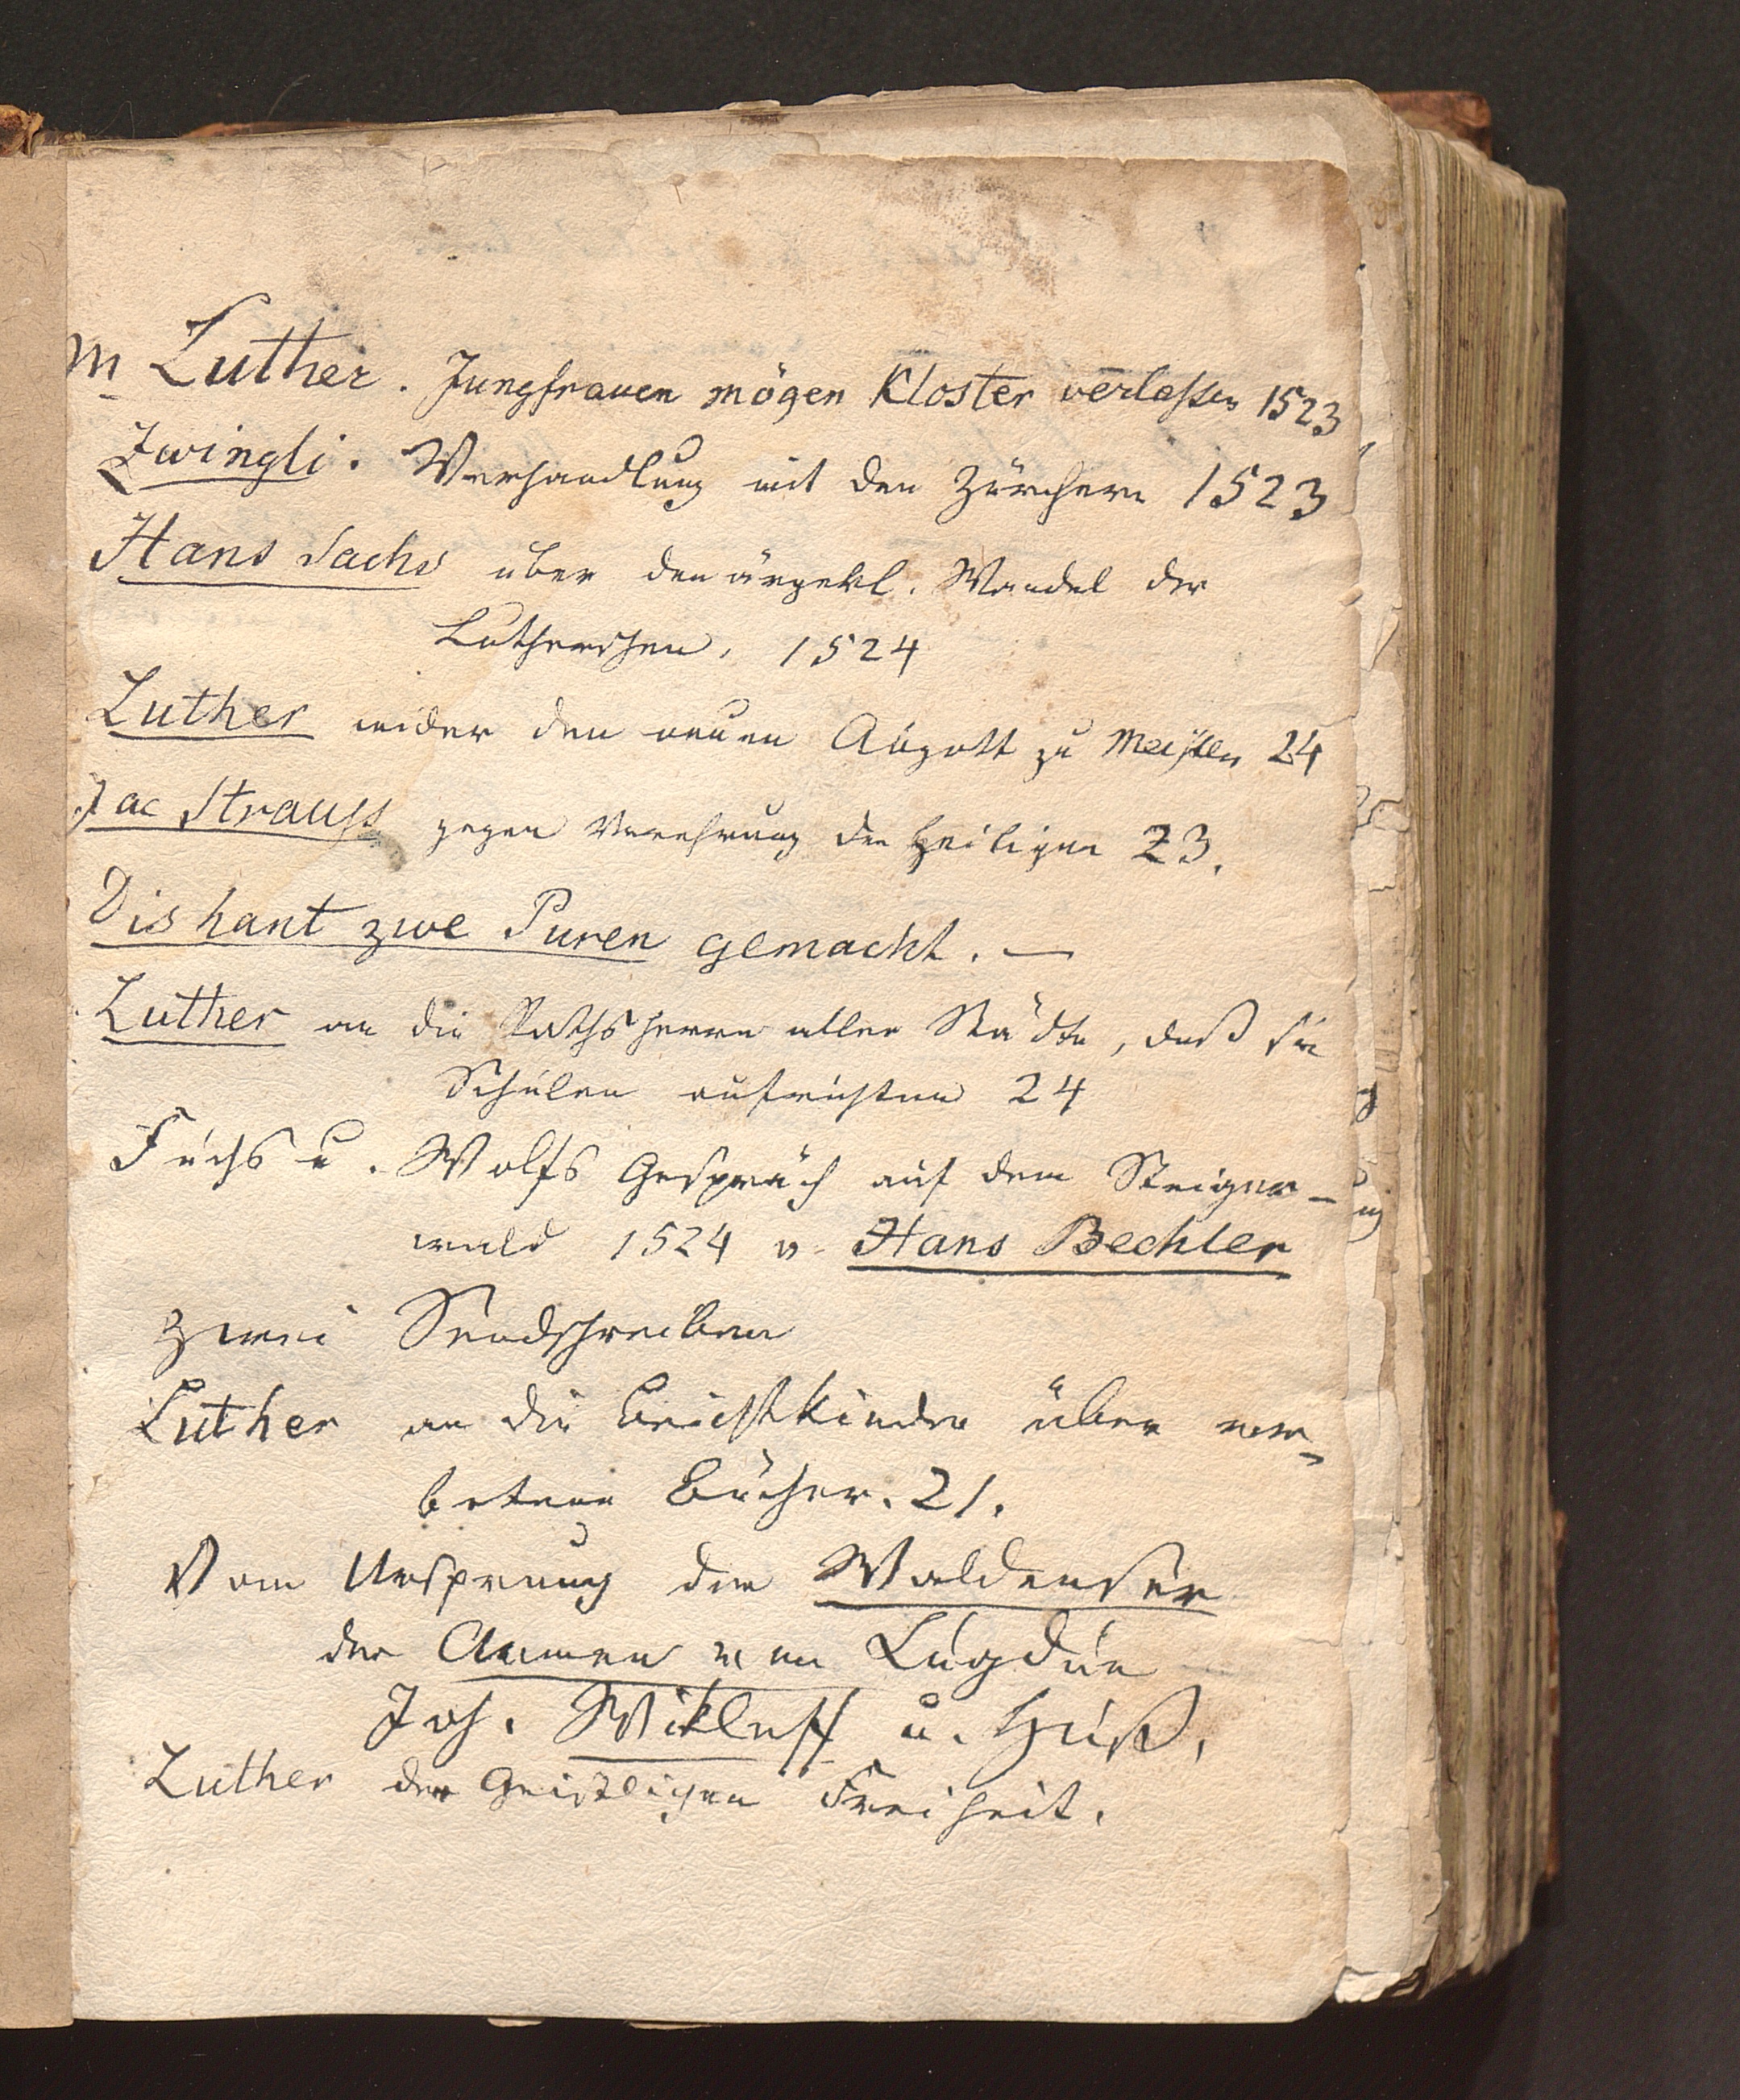 M Luther. Jungfrauen mögen Kloster verlaßen 1523
Zwingli. Verhandlung mit den Zürchern 1523
Hans Sachs über den ärgerl. Wandel der
Lutherschen, 1524
Luther wider den neuen Abgott zu Meißen 24
Jac Strauss gegen Verehrung der Heiligen 23.
Dis hant zwe Puren gemacht. —
Luther an die Rathsherrn aller Städte, daß sie
Schulen aufrichten 24
Fuchs u. Wolfs Gespräch auf dem Steiger-
wald 1524 v. Hans Bechler
Zwei Sendschreiben
Luther an die Beichtkinder über ver-
botene Bücher. 21.
Vom Ursprung der Waldenser
der Armen von Lugdun
Joh. Wikleff u. Huß.
Luther der Geistlichen Freiheit.